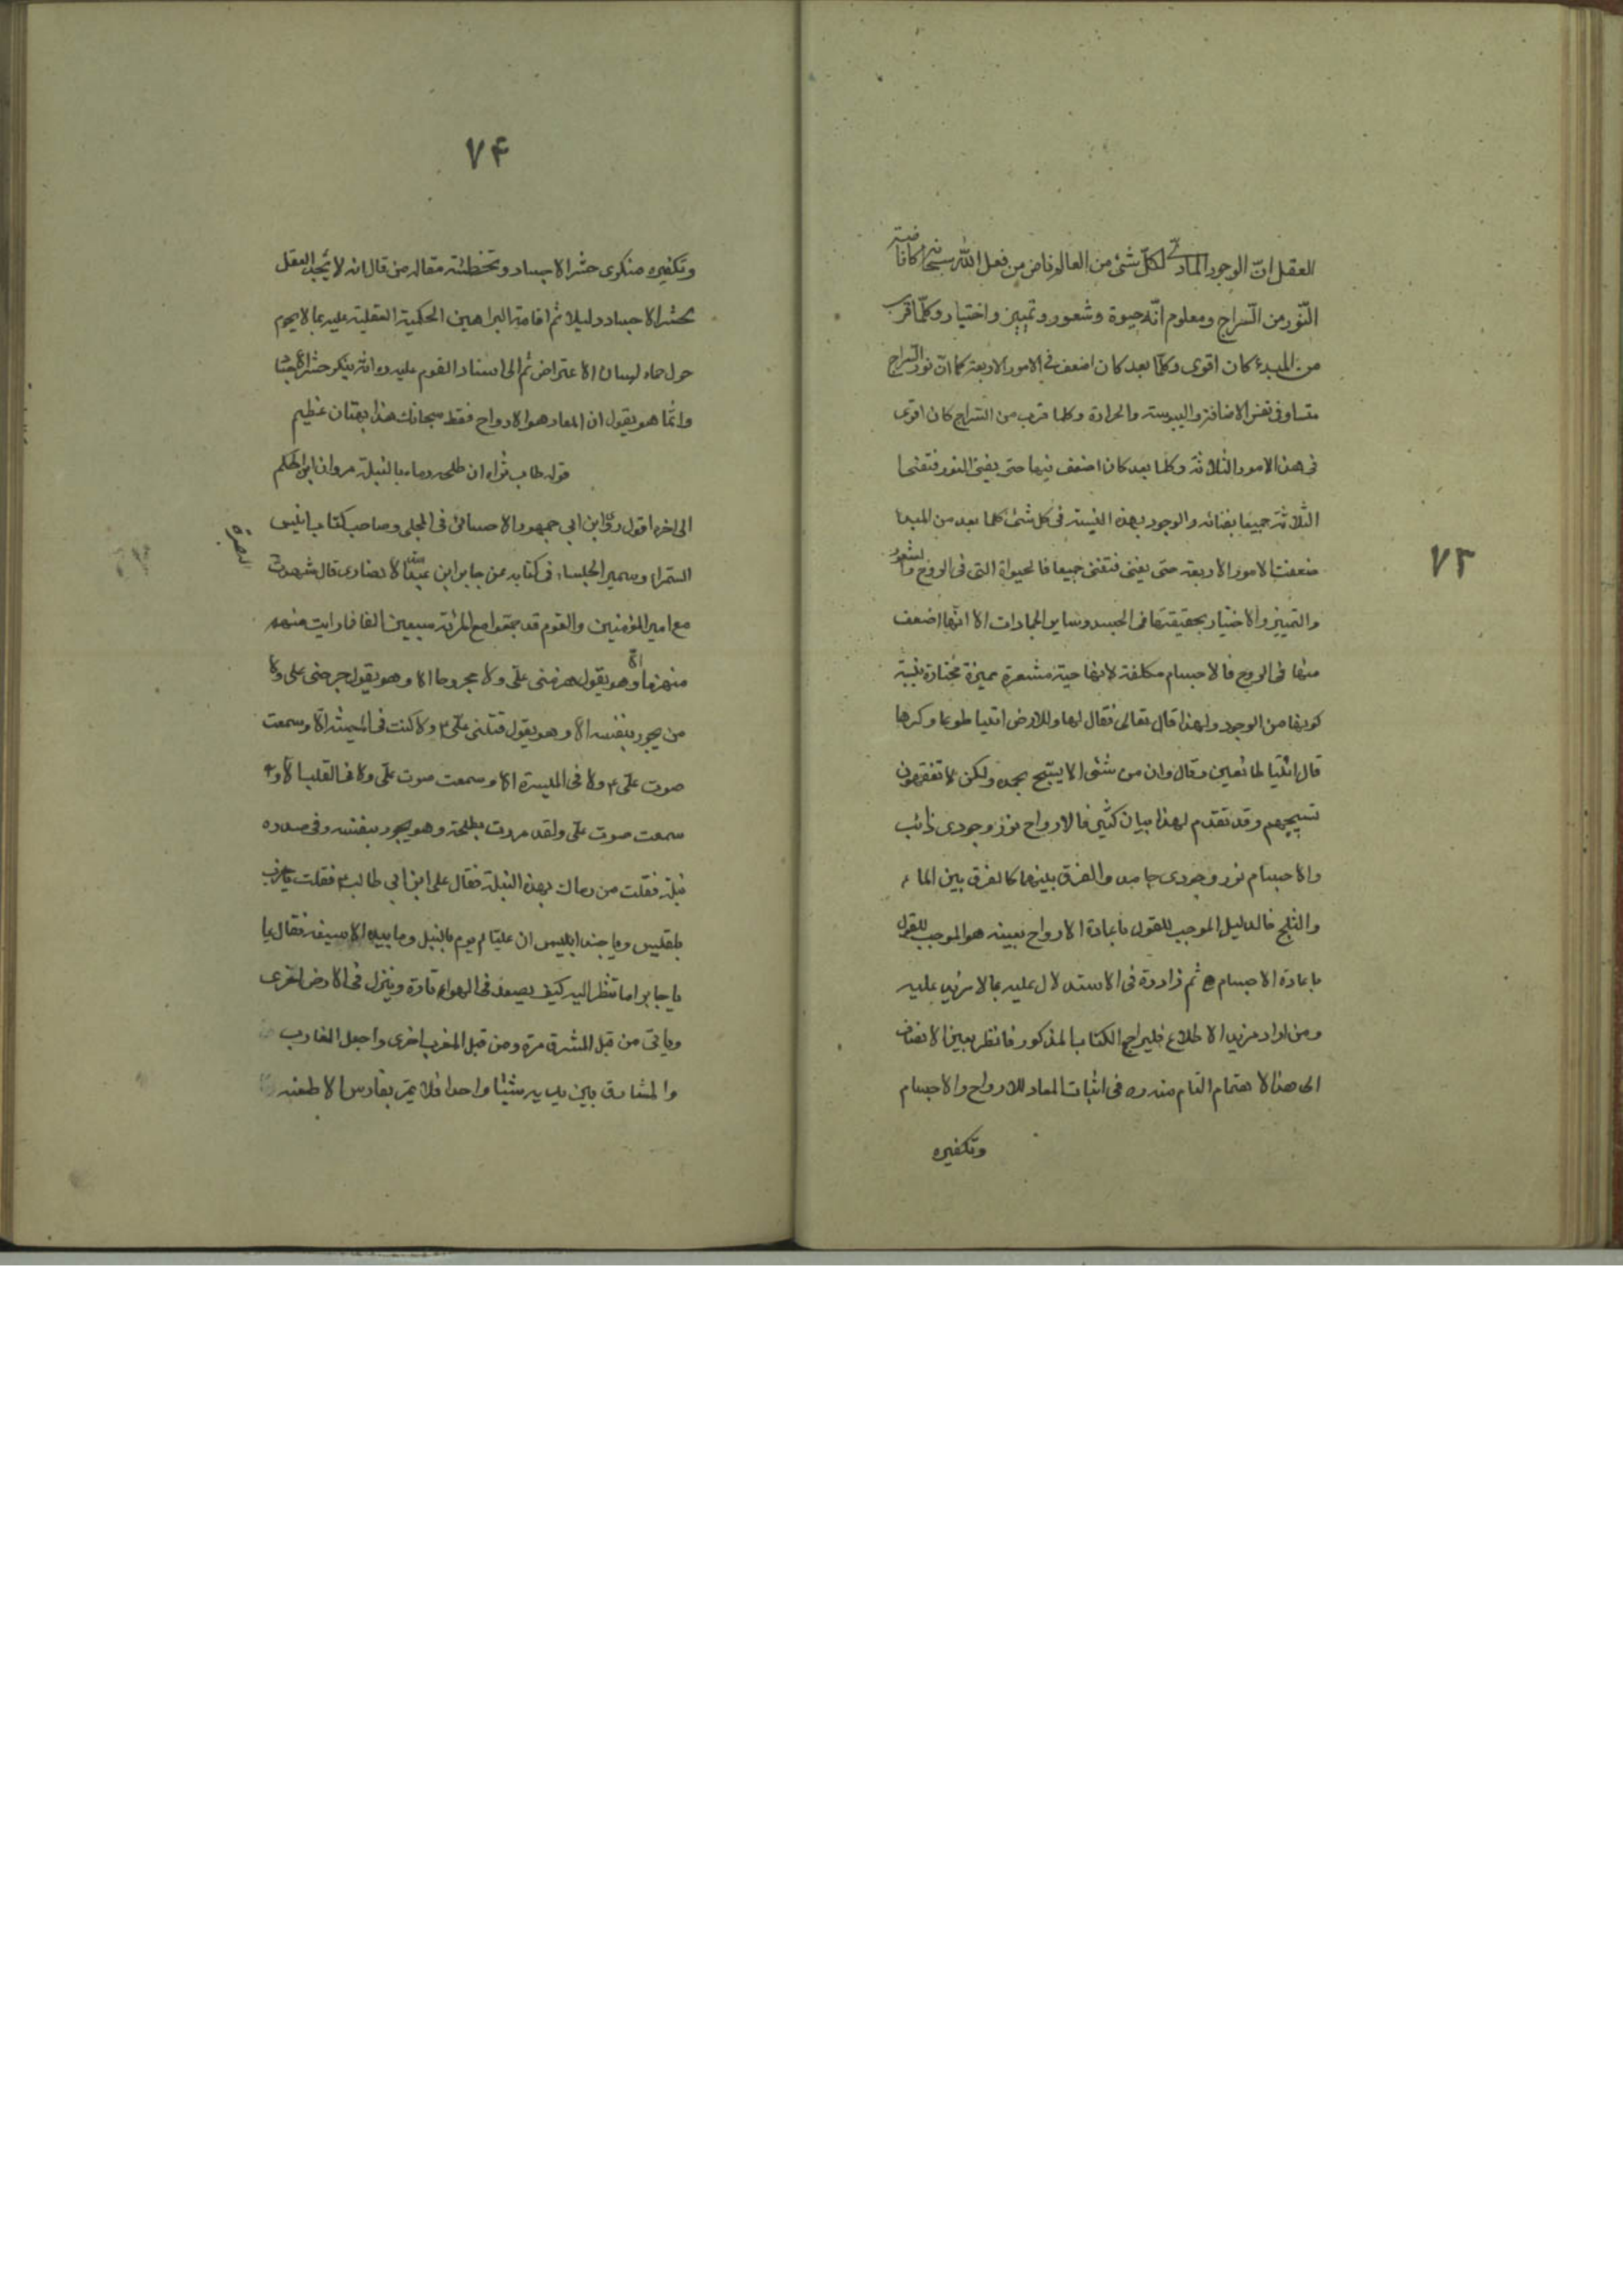 ٧٣
العقل انّ الوجود المادّي لكلّ شئ من العالم فاض من فعل الله سبحانه كافاضة
النّور من السّراج ومعلوم انّه حيوة وشعور وتمييز واختيار وكلّما قرب
من المبدء كان اقوى وكلّما بعد كان اضعف في الامور الاربعة كما انّ نور السراج
متساو في نفس الاضائة واليبوسة والحرارة وكلما قرب من السّراج كان اقوى
في هذه الامور الثلاثة وكلما بعد كان اضعف فيها حتى يفنى النور فتفنى
الثلاثة جميعا بفنائه والوجود بهذه النسبة في كل شئ كلما بعد من المبدا
ضعفت الامور الاربعة حتى يفنى فتفنى جميعا فالحيواة التى في الروح والشعور
والتمييز والاختيار بحقيقتها في الجسد وساير الجمادات الا انّها اضعف
منها في الروح فالاجسام مكلفة لانها حية مشعرة مميزة مختارة بنسبة
كونها من الوجود ولهذا قال تعالى فقال لها وللارض ائتيا طوعا وكرها
قال ائتيا طائعين وقال وان من شئى الا يسبّح بحمده ولكن لا تفقهون
تسبيحهم وقد تقدم لهذا بيان كثير فالارواح نور وجودى ذائب
والاجسام نور وجودى جامد والفرق بينهما كالفرق بين الماء
والثلج فالدليل الموجب للقول باعادة الارواح بعينه هو الموجب للقول
باعادة الاجسام ثم زاد ره في الاستدلال عليه بما لا مزيد عليه
ومن اراد مزيد الاطلاع فليراجع الكتاب المذكور فانظر بعين الانصاف
الى هذا الاهتمام التام منه ره في اثبات المعاد للارواح والاجسام
وتكفيره
٧۴
وتكفيره منكرى حشر الاجساد وتخطئته مقاله من قال انه لا يجد العقل
بحشر الاجساد دليلا ثم اقامة البراهين الحكمية العقلية عليه بما لا يحوم
حول حماه لسان الاعتراض ثم الى اسناد القوم عليه ره انّه ينكر حشر الاجساد
وانّما هو يقول ان المعاد هو الارواح فقط سبحانك هذا بهتان عظيم
قوله طاب ثراه ان طلحه رماه بالنبلة مروان ابن الحكم
الى اخره اقول روى ابن ابي جمهور الاحسائى في المجلى وصاحب كتاب انيس
السمراء وسمير الجلساء في كتابه عن جابر ابن عبد الله الانصارى قال شهدت
البصرة
مع امير المؤمنين والقوم قد جمعوا مع المرئة سبعين الفا فما رايت منهم
منهزما الّا وهو يقول هزمنى علىّ ولا مجروحا الا وهو يقول جرحنى على ولا
من يجود بنفسه الا وهو يقول قتلنى علىّ ع ولا كنت في الميمنة الّا وسمعت
صوت علىّ ع ولا في الميسرة الا وسمعت صوت علىّ ولا في القلب الّا و
سمعت صوت علىّ ولقد مررت بطلحة وهو يجود بنفسه وفي صدره
نبلة فقلت من رماك بهذه النبلة فقال على ابن ابي طالب ع فقلت يا حزب
بلقيس ويا جند ابليس ان عليّا لم يرم بالنبل وما بيده الا سيفه فقال يا
يا جابر اما تنظر اليه كيف يصعد في الهواء تارة وينزل في الارض اخرى
وياتى من قبل المشرق مرة ومن قبل المغرب اخرى واجعل المغارب
والمشارق بين يديه شيئا واحدا فلا يمرّ بفارس الا طعنه